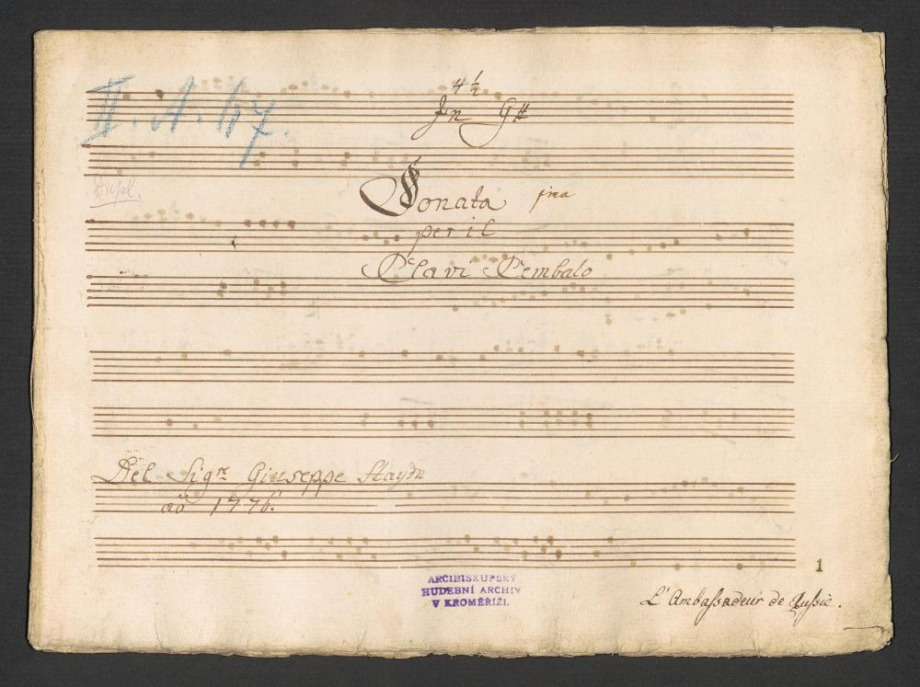 4 1/2
II. A. 47.
In G#
Sonata pma
Dupl.
per il
Clavi Cembalo
Del Sigre Giuseppe Haydn
ao 1776.
1
ARCIBISKUPSKÝ
HUDEBNÍ ARCHIV
V KROMĚŘÍŽI.
L'Ambassadeur de Russie.